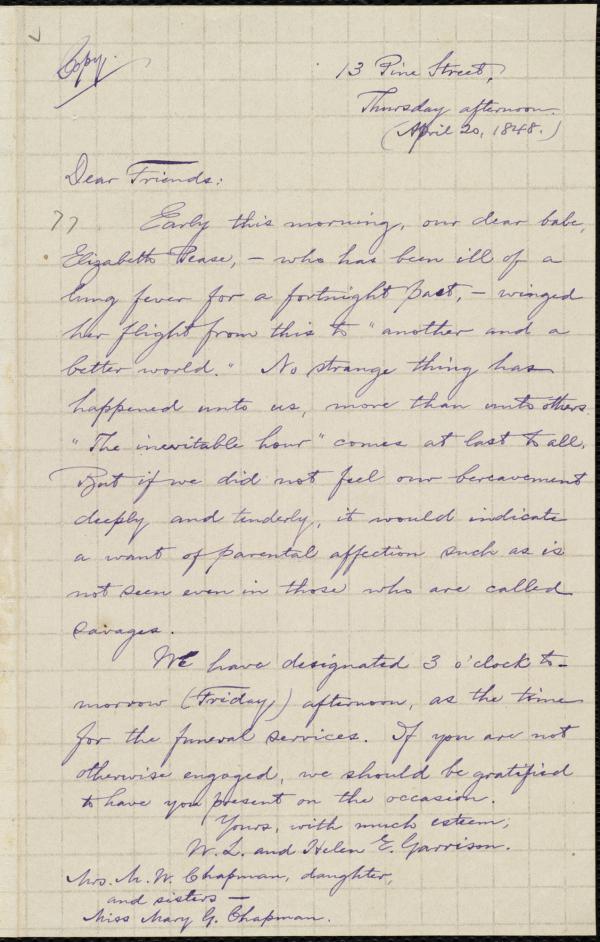 Copy.
13 Pine Street,
Thursday afternoon.
(April 20, 1848.)
Dear Friends:
Early this morning, our dear babe,
Elizabeth Pease, – who has been ill of a
lung fever for a fortnight past, – winged
her flight from this to "another and a
better world." No strange thing has
happened unto us, more than unto others.
"The inevitable hour" comes at last to all.
But if we did not feel our bereavement
deeply and tenderly, it would indicate
a want of parental affection such as is
not seen even in those who are called
savages.
We have designated 3 o'clock to-
morrow (Friday) afternoon, as the time
for the funeral services. If you are not
otherwise engaged, we should be gratified
to have you present on the occasion.
Yours, with much esteem,
W. L. and Helen E. Garrison.
Mrs. M. W. Chapman, daughter,
and sisters –
Miss Mary G. Chapman.